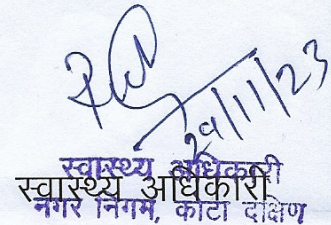 29/11/23
स्वास्थ्य अधिकारी
स्वास्थ्य अधिकारी
नगर निगम, कोटा दक्षिण